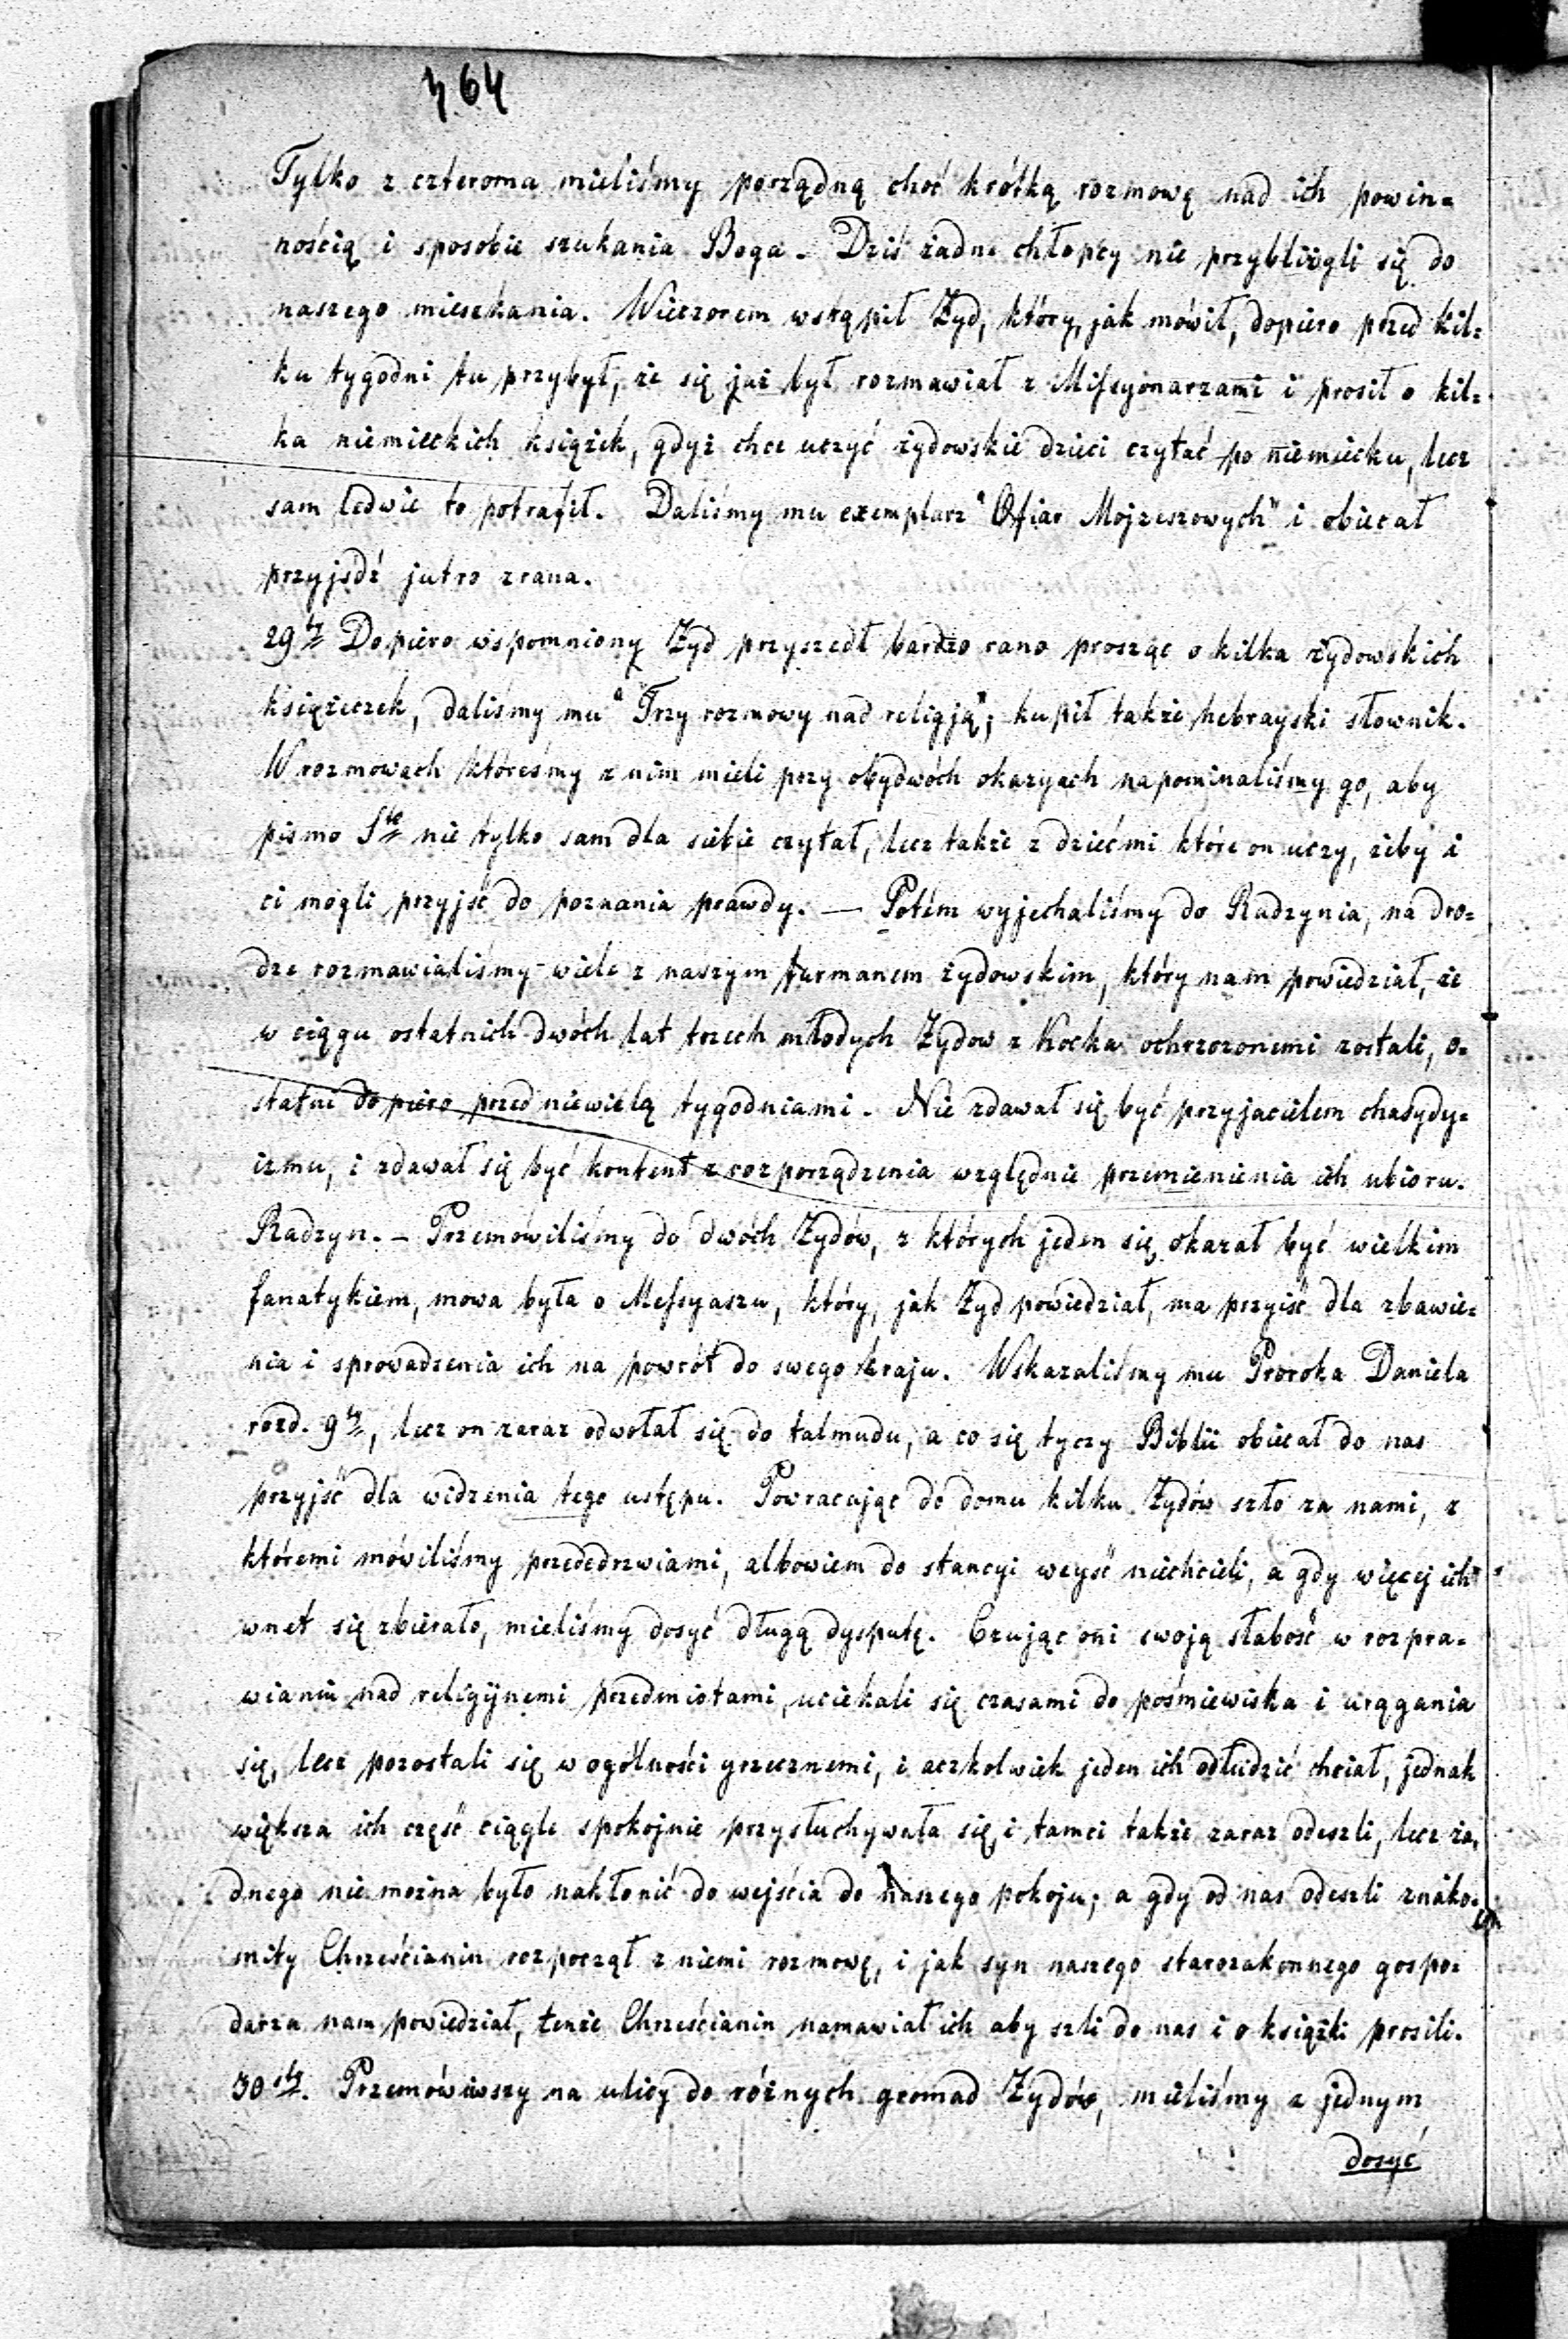 464
Tylko z czteroma mieliśmy porządną choć krótką rozmowę nad ich powin=
nością i sposobie szukania Boga. Dziś żadne chłopcy nie przybliżyli się do
naszego mieszkania. Wieczorem wstąpił Żyd, który, jak mówił, dopiero przed kil=
ku tygodni tu przybył, że się już był rozmawiał z Missyonarzami i prosił o kil=
ka niemieckich książek, gdyż chce uczyć żydowskie dzieci czytać po niemiecku, lecz
sam ledwie to potrafił. Daliśmy mu exemplarz "Ofiar Mojzeszowych" i obiecał
przyjsdź jutro zrana.
29ty Dopiero wspomniony Żyd przyszedł bardzo rano prosząc o kilka żydowskich
książeczek, daliśmy mu "Trzy rozmowy nad religją"; kupił także hebrayski słownik.
W rozmowach któreśmy z nim mieli przy obydwóch okazyach napominaliśmy go, aby
pismo Ste nie tylko sam dla siebie czytał, lecz także z dziećmi które on uczy, żeby i
ci mogli przyjść do poznania prawdy. — Potém wyjechaliśmy do Radzynia, na dro=
dze rozmawialiśmy wiele z naszym furmanem żydowskim, który nam powiedział, że
w ciągu ostatnich dwóch lat trzech młodych Żydow z Kocka ochrzczonemi zostali, o=
statni dopiero przed niewielą tygodniami. Nie zdawał się być przyjacielem chasydy=
izmu, i zdawał się być kontent z rozporządzenia względnie przemienienia ich ubioru.
Radzyn. — Przemówiliśmy do dwóch Żydów, z których jeden się okazał być wielkim
fanatykiem, mowa była o Messyaszu, który, jak Żyd powiedział, ma przyiść dla zbawie=
nia i sprowadzenia ich na powrót do swego kraju. Wskazaliśmy mu Proroka Daniela
rozd. 9ty, lecz on zaraz odwołał się do talmudu, a co się tyczy Biblii obiecał do nas
przyjść dla widzenia tego ustępu. Powracając do domu kilku Żydów szło za nami, z
któremi mówiliśmy przededrzwiami, albowiem do stancyi weyść niechcieli, a gdy więcej ich
wnet się zbierało, mieliśmy dosyć długą dysputę. Czując oni swoją słabość w rozpra=
wianiu nad religijnemi przedmiotami, uciekali się czasami do pośmiewiska i urągania
się, lecz pozostali się w ogólności grzecznemi, i aczkolwiek jeden ich odłudzić chciał, jednak
większa ich część ciągle spokojnie przysłuchywała się, i tamci także zaraz odeszli, lecz ża=
dnego nie można było nakłonić do wejścia do naszego pokoju; a gdy od nas odeszli znako=
mity Chrześcianin rozpoczął z niemi rozmowę, i jak syn naszego starozakonnego gospo=
darza nam powiedział, tenże Chrześcianin namawiał ich aby szli do nas i o książki prosili.
30sty. Przemówiwszy na ulicy do różnych gromad Żydów, mieliśmy z jednym
dosyć